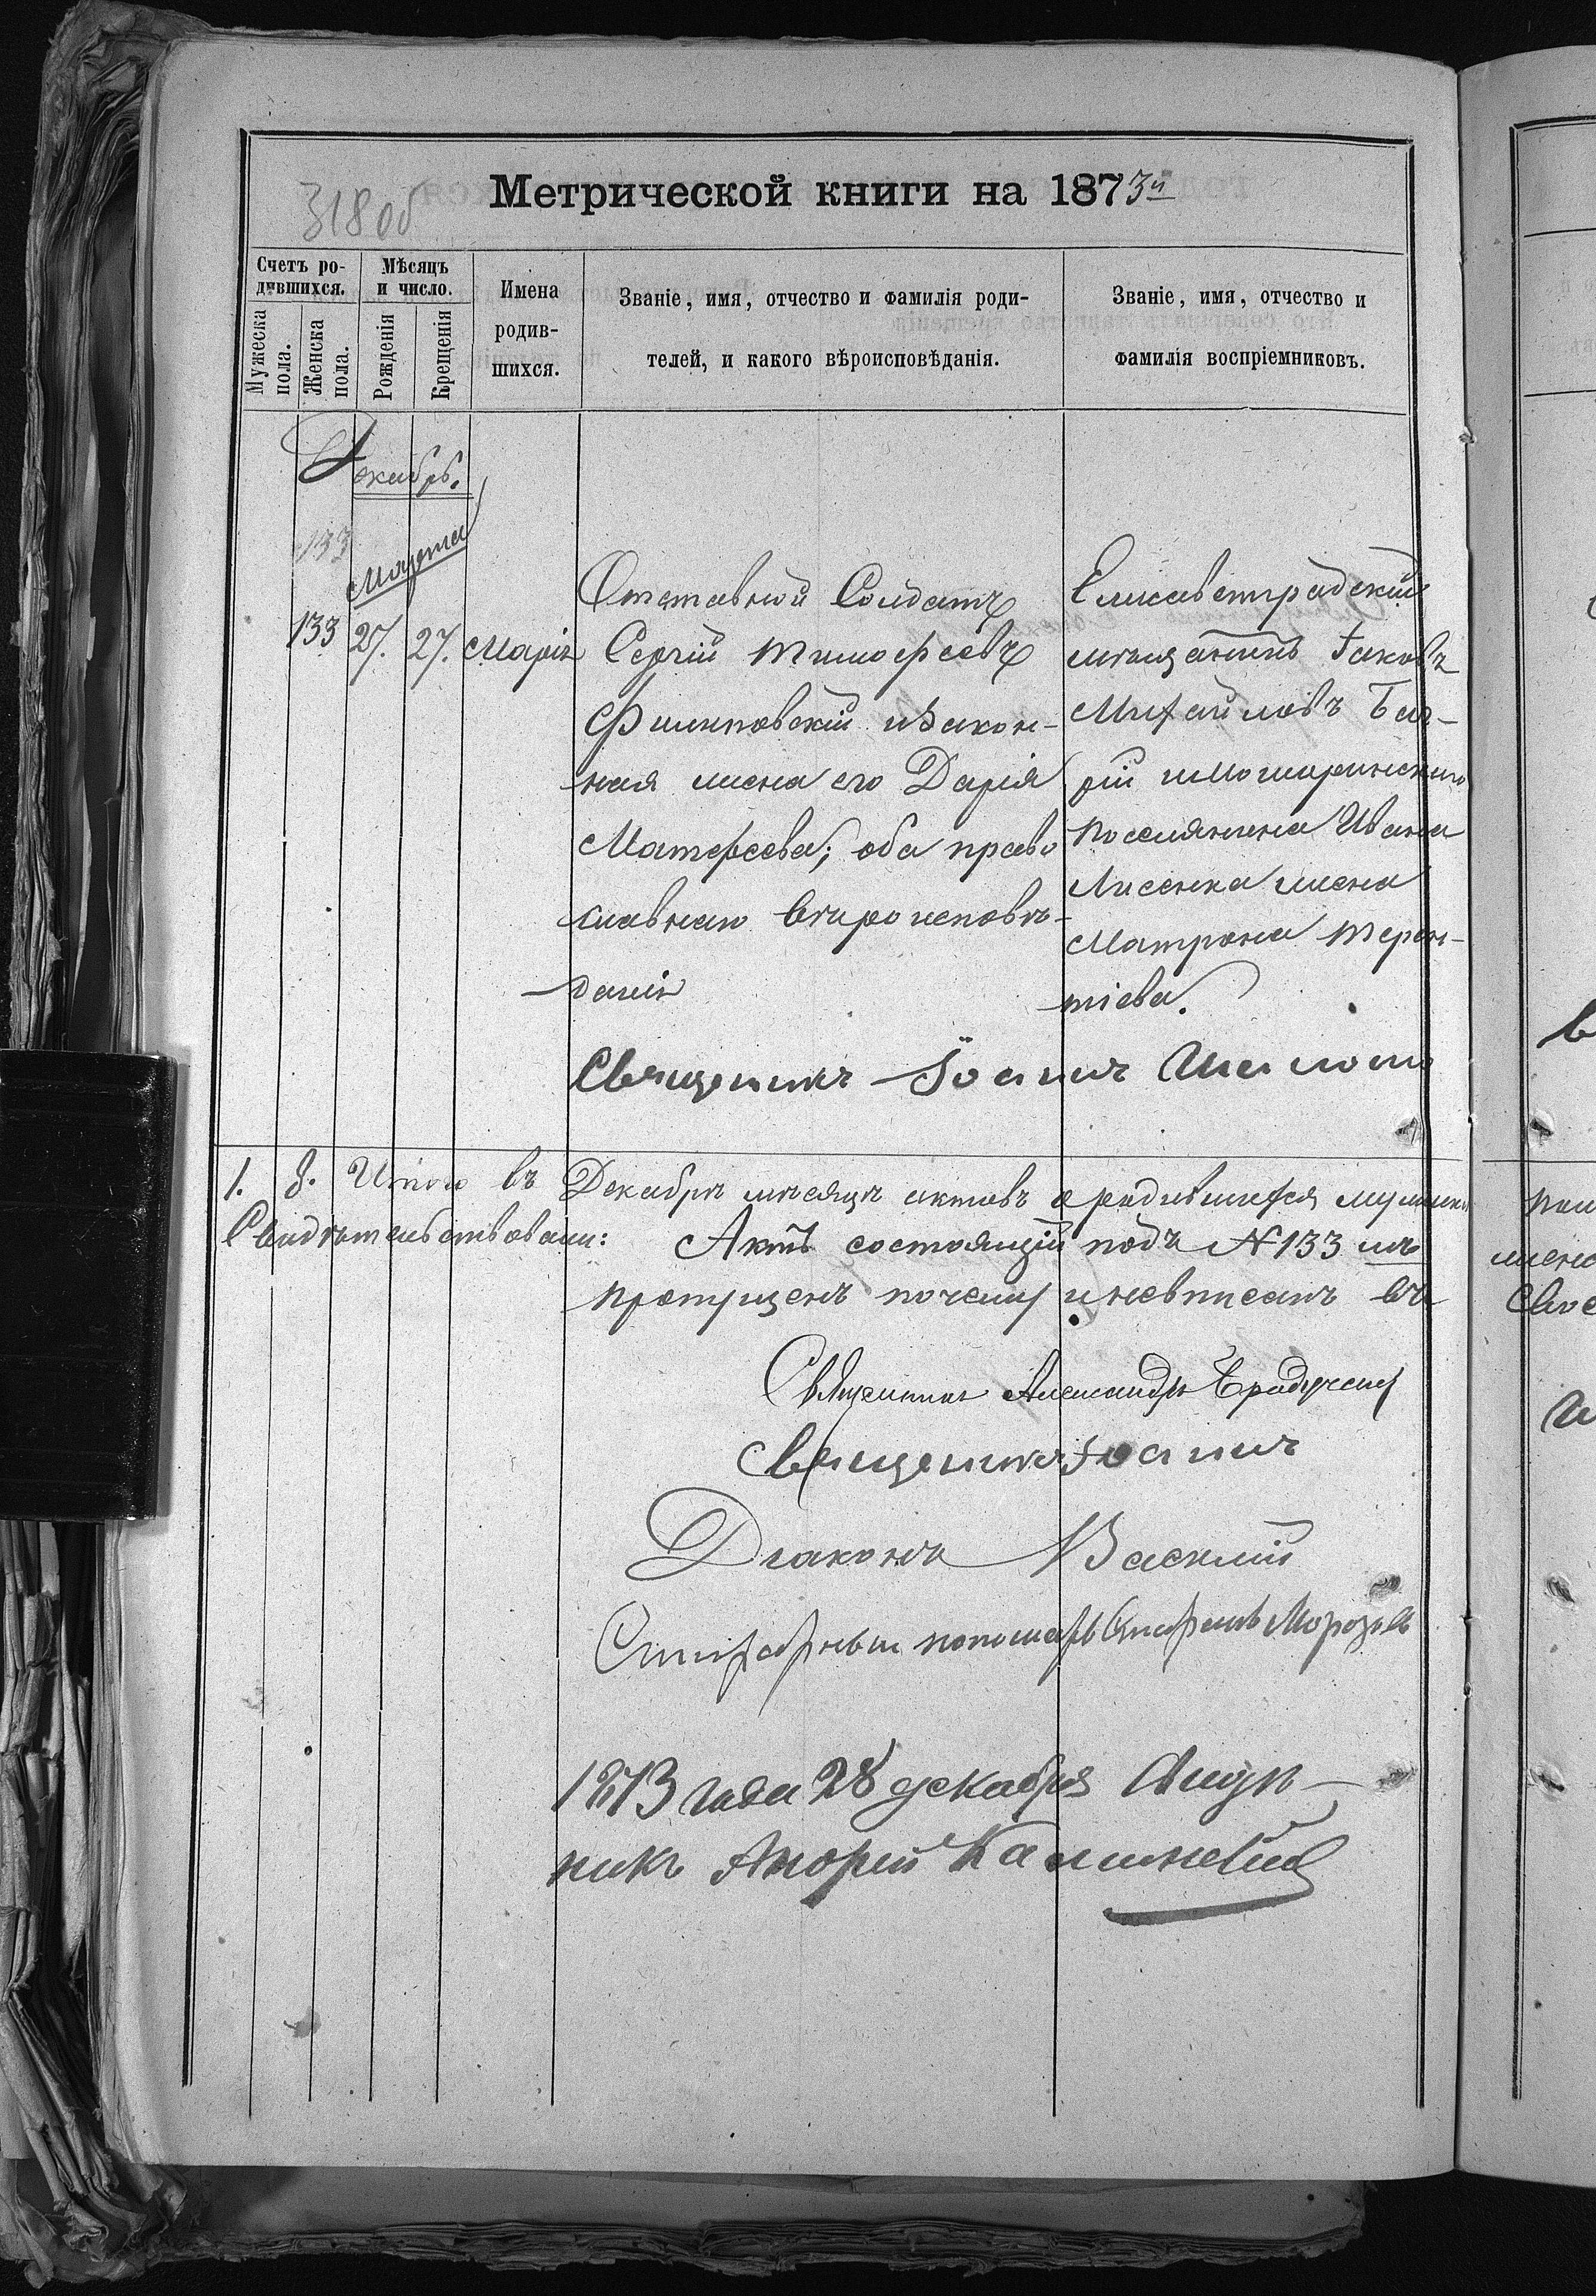 318 об
Метрической книги на 1873й
Счетъ родившихся.
Мужеска пола.
Женска пола.
Мѣсяцъ и число.
Рожденія
Крещенія
Имена родившихся.
Званіе, имя, отчество и фамилія родителей, и какого вѣроисповѣданія.
Званіе, имя, отчество и фамилія воспріемниковъ.
Декабрь.
133
Марта
133 27. 27. Марія
Отставной Солдатъ
Сергій Тимофеевъ
Филиповскій и закон-
ная жена его Дарія
Матфеева; оба право
славнаго вѣроисповѣ-
данія
Елисаветградскій
мѣщанинъ Іаковъ
Михайловъ
поселянина Ивана
Лисенка жена
Матрона Терен-
тіева.
Священникъ Іоаннъ
1. 8. Итого въ Декабрѣ мѣсяцѣ актовъ о родившихся мужеска
Свидѣтельствовали: Актъ состоящій подъ № 133 мъ
пропущенъ почему и невписанъ въ
Священникъ Александръ
Священникъ Іоаннъ
Діаконъ Василій
пономарь Морозовъ
1873 года 28 декабря